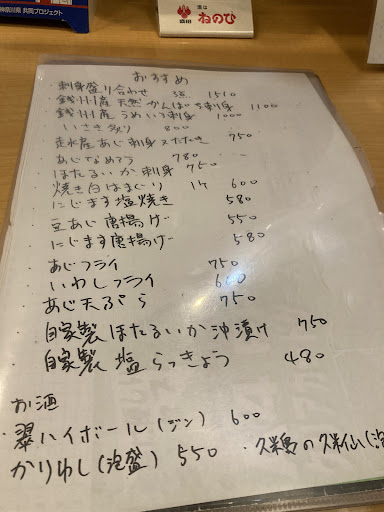 共同プロジェクト
酒は
ねのひ
おすすめ
・刺身盛り合わせ 3点 1510
・銭州産天然かんぱち刺身 1100
・銭州産うめいろ刺身 1000
・いさき炙り 800
・走水産あじ刺身 又はたたき 750
・あじなめろう 780
・ほたるいか刺身 750
・焼き白はまぐり 1ケ 600
・にじます塩焼き 580
・豆あじ唐揚げ 550
・にじます唐揚げ 580
・あじフライ 750
・いわしフライ 600
・あじ天ぷら 750
・自家製ほたるいか沖漬け 750
・自家製塩らっきょう 480
お酒
・翠ハイボール(ジン) 600
かりゆし(泡盛) 550 ・久米島の久米仙(泡